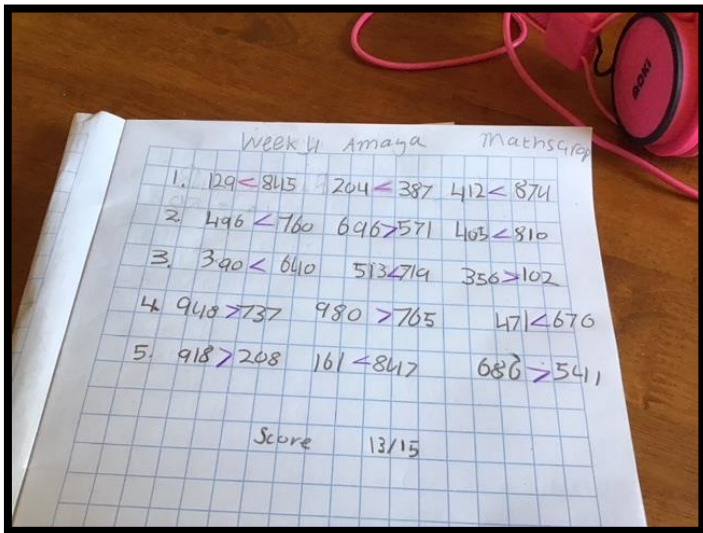 Week 4 Amaya Maths Grap
1. 129 < 845 204 < 387 412 < 874
2. 496 < 760 696 > 571 403 < 810
3. 390 < 640 513 < 719 356 > 102
4. 948 > 737 980 > 765 471 < 676
5. 918 > 208 161 < 847 686 > 541
Score 13/15
ROKI